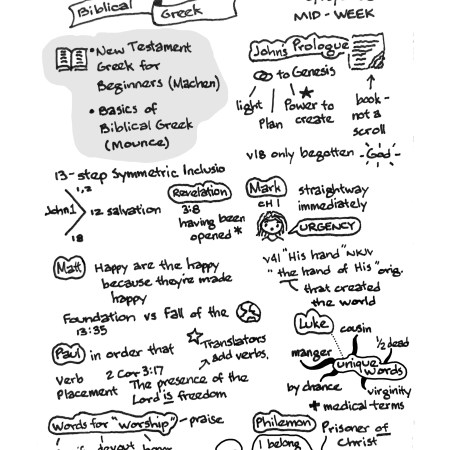 Biblical Greek
MID - WEEK
• New Testament
Greek for
Beginners (Machen)
• Basics of
Biblical Greek
(Mounce)
John's Prologue
to Genesis
light
Plan
Power to
create
book -
not a
scroll
v18 only begotten - God -
13-step Symmetric Inclusio
1,2
John 1
12 salvation
18
Revelation
3:8
having been
opened *
Mark
CH 1
straightway
immediately
URGENCY
v41 "His hand" NKJV
"the hand of His" orig.
that created
the world
Matt
Happy are the happy
because they're made
happy
Foundation vs fall of the
13:35
Paul
in order that
Translators
add verbs.
Verb
Placement
2 Cor 3:17
The presence of the
Lord is freedom
Luke
cousin
1/2 dead
manger
unique
words
by chance
virginity
+ medical terms
Words for "worship"
- praise
Philemon
I belong
Prisoner of
Christ